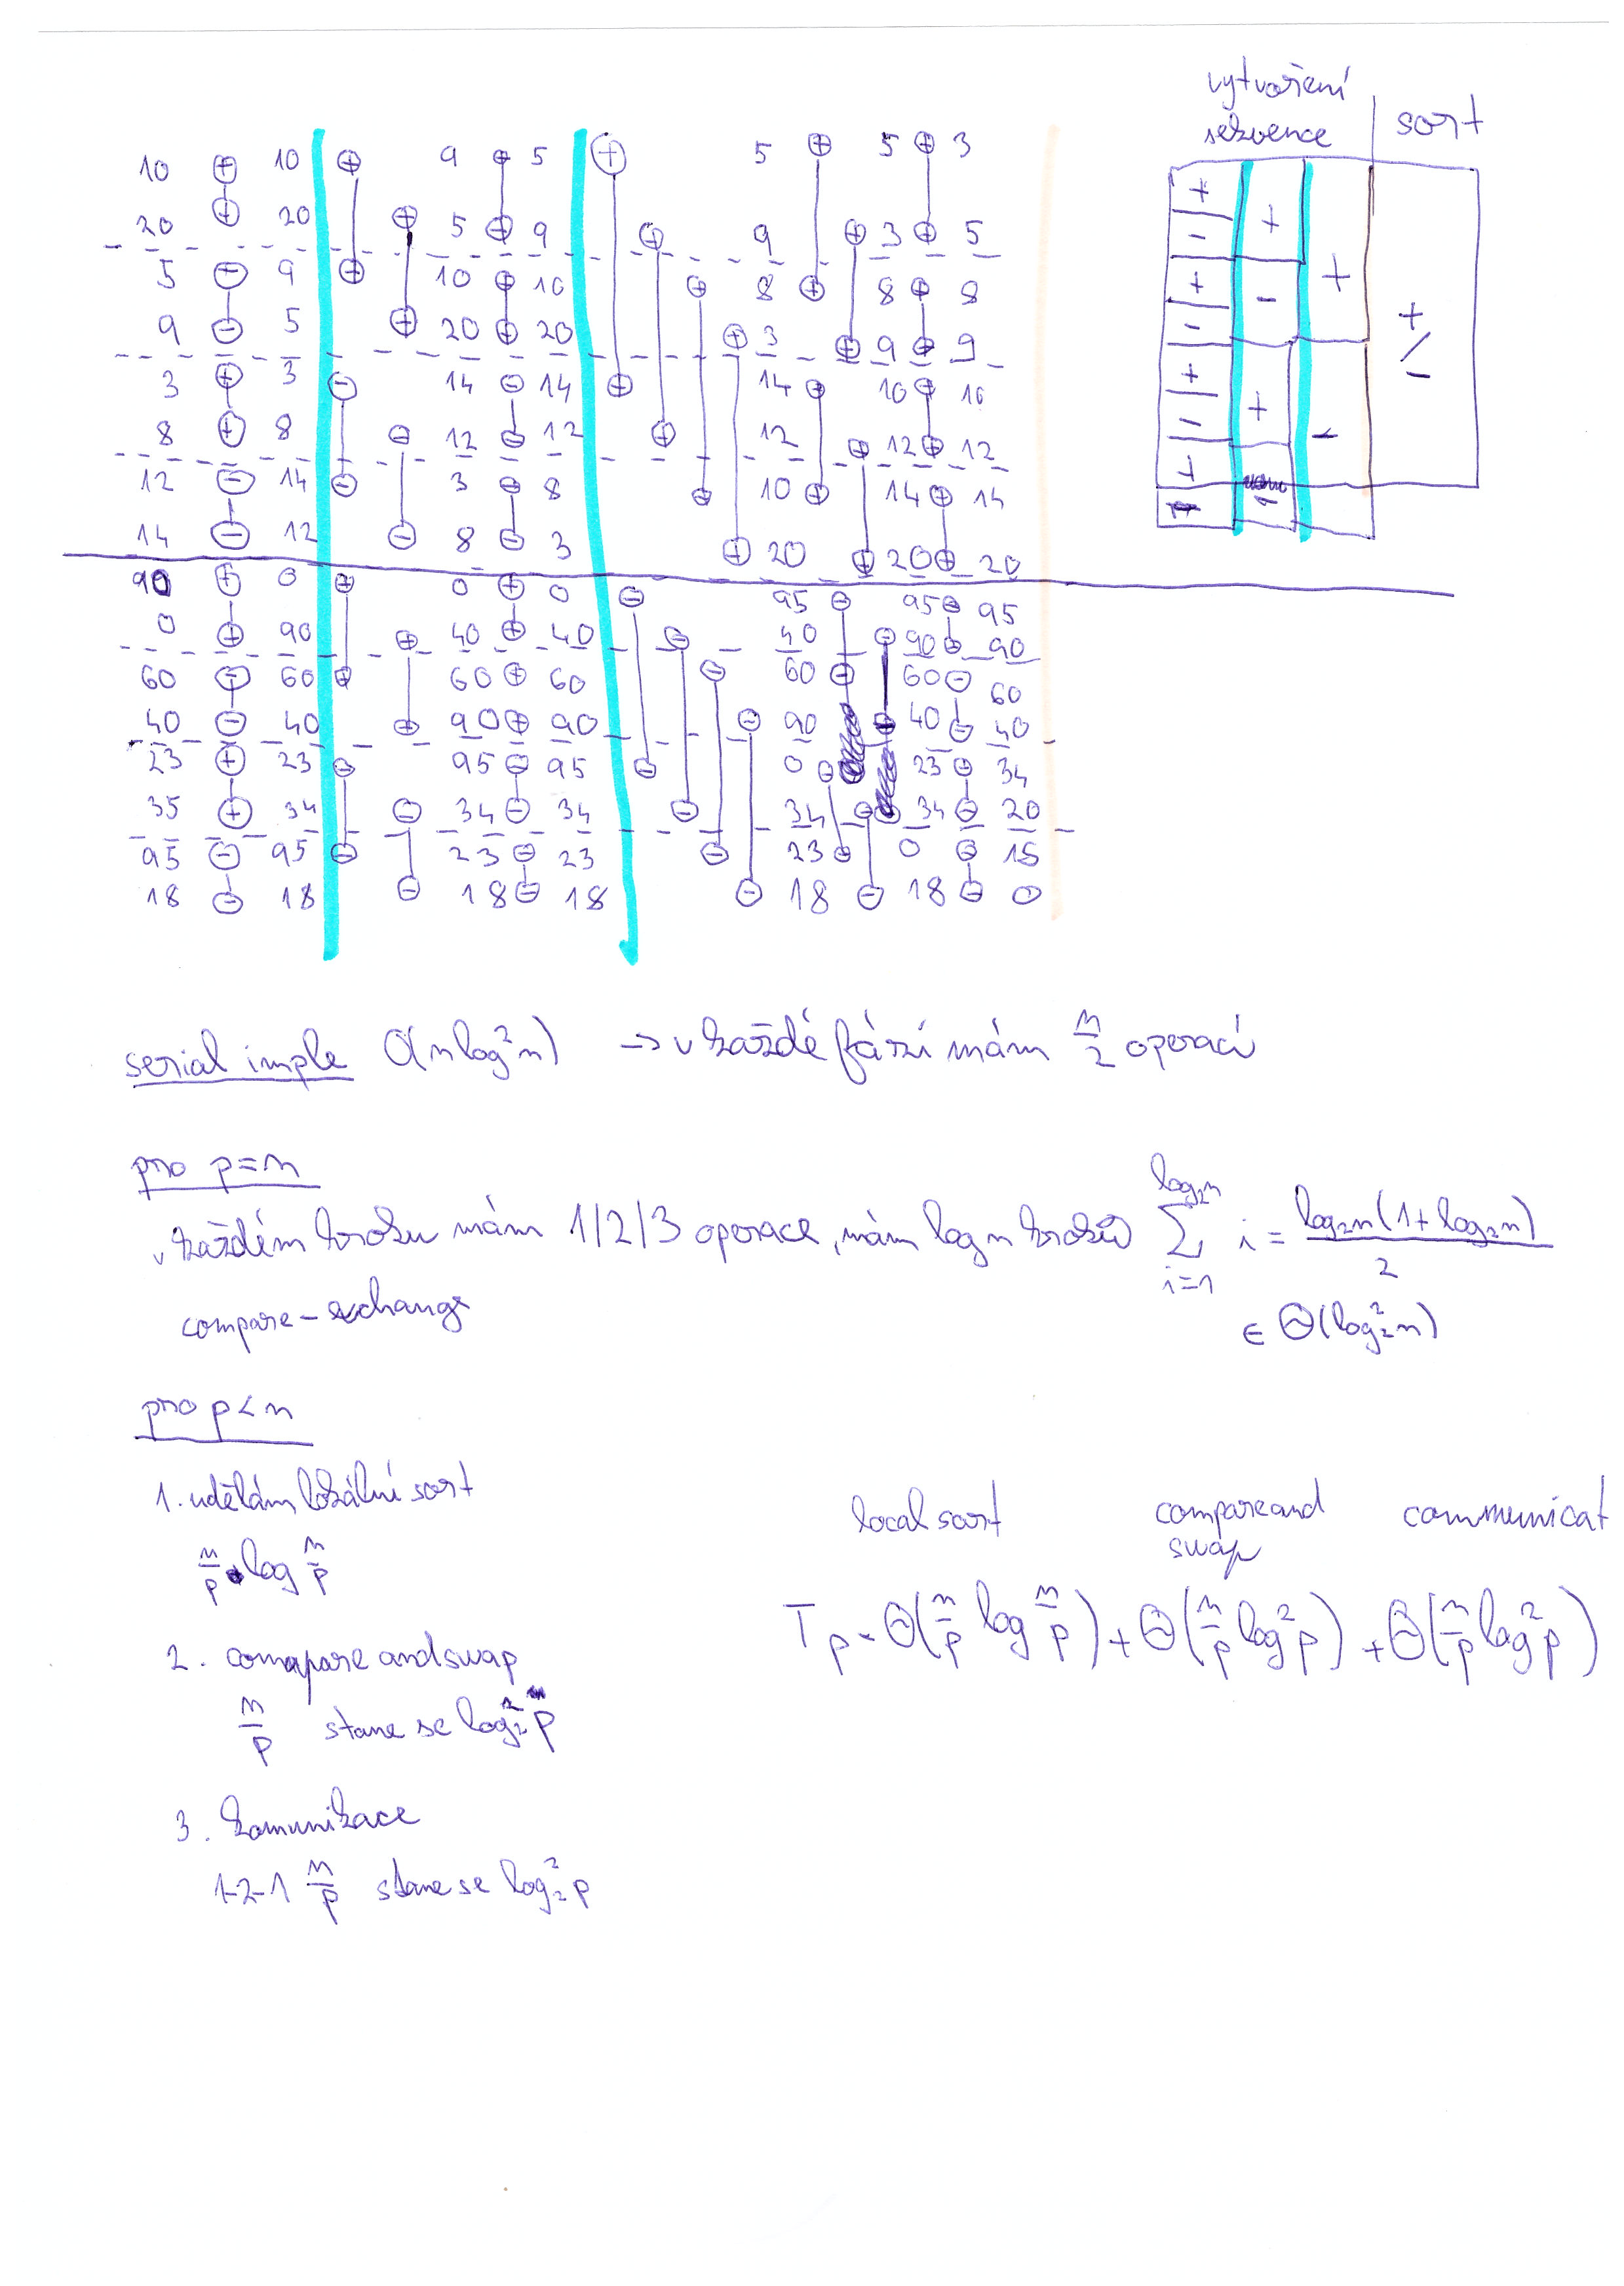 vytvoření
sekvence sort
10 ⊕ 10 ⊕ 9 ⊕ 5 ⊕ 5 ⊕ 5 ⊕ 3
20 ⊕ 20 ⊕ 5 ⊕ 9 ⊕ 9 ⊕ 3 ⊕ 5
5 ⊖ 9 ⊕ 10 ⊕ 10 ⊕ 8 ⊕ 8 ⊕ 8
9 ⊖ 5 ⊕ 20 ⊕ 20 ⊕ 3 ⊕ 9 ⊕ 9
3 ⊕ 3 ⊖ 14 ⊖ 14 ⊕ 14 ⊕ 10 ⊕ 10
8 ⊕ 8 ⊖ 12 ⊖ 12 ⊕ 12 ⊕ 12 ⊕ 12
12 ⊖ 14 ⊖ 3 ⊖ 8 ⊕ 10 ⊕ 14 ⊕ 14
14 ⊖ 12 ⊖ 8 ⊖ 3 ⊕ 20 ⊕ 20 ⊕ 20
90 ⊕ 0 ⊕ 0 ⊕ 0 ⊖ 95 ⊖ 95 ⊖ 95
0 ⊕ 90 ⊕ 40 ⊕ 40 ⊖ 40 ⊖ 90 ⊖ 90
60 ⊖ 60 ⊕ 60 ⊕ 60 ⊖ 60 ⊖ 60 ⊖ 60
40 ⊖ 40 ⊕ 90 ⊕ 90 ⊖ 90 ⊖ 40 ⊖ 40
23 ⊕ 23 ⊖ 95 ⊖ 95 ⊖ 0 ⊖ 23 ⊖ 34
35 ⊕ 34 ⊖ 34 ⊖ 34 ⊖ 34 ⊖ 34 ⊖ 20
95 ⊖ 95 ⊖ 23 ⊖ 23 ⊖ 23 ⊖ 0 ⊖ 15
18 ⊖ 18 ⊖ 18 ⊖ 18 ⊖ 18 ⊖ 18 ⊖ 0
+ + + +/-
-
+ -
-
+ + -
-
+ -
serial imple O(n log² n) → v každé fázi mám n/2 operací
pro p=n
v každém kroku mám 1/2/3 operace, mám log n kroků ∑_{i=1}^{log₂n} i = log₂n(1+log₂n)/2
compare-exchange ∈ Θ(log₂² n)
pro p<n
1. udělám lokální sort
n/p · log n/p
local sort compare and swap communicat
T_p = Θ(n/p log n/p) + Θ(n/p log² p) + Θ(n/p log² p)
2. comapare and swap
n/p stane se log₂² p
3. komunikace
1-2-1 n/p stane se log₂² p